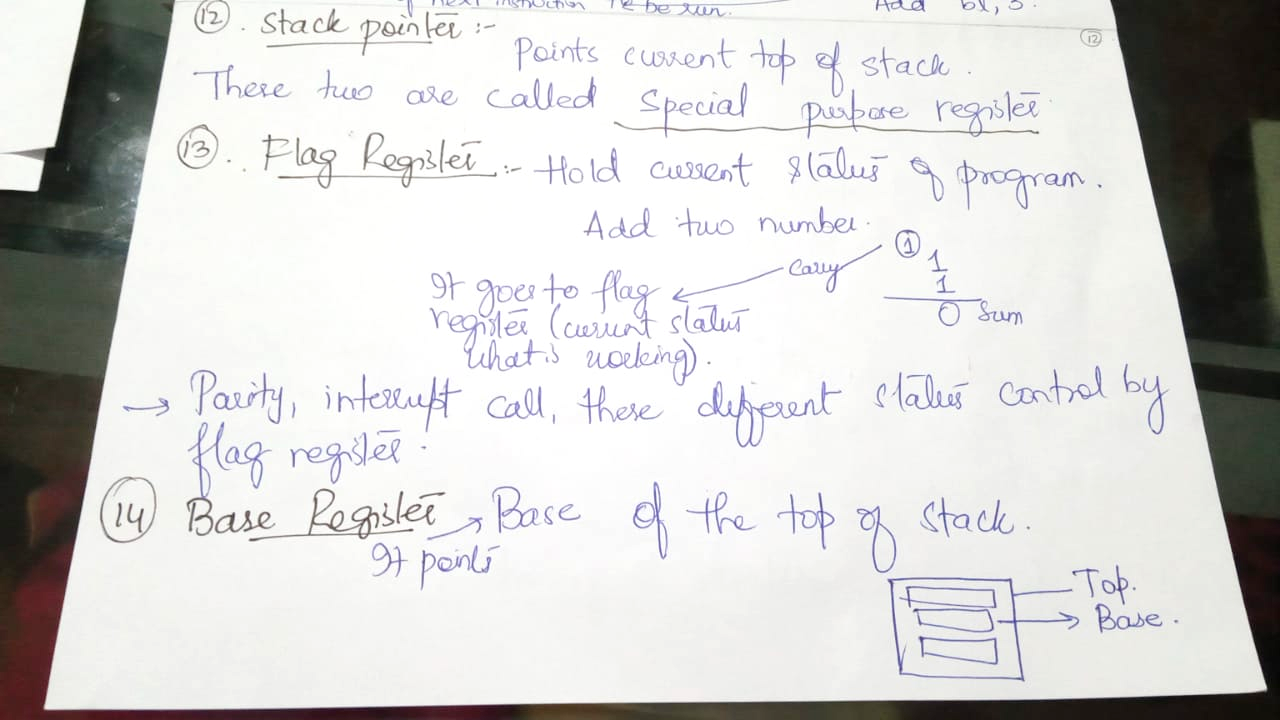 of next instruction to be run. Add bl, 3.
12
(12). Stack pointer :-
Points current top of stack.
These two are called Special purpose register
(13). Flag Register :- Hold current status of program.
Add two number.
1
1
1
0 Sum
carry
It goes to flag
register (current status
what is working).
→ Parity, interrupt call, these different status control by
flag register.
(14) Base Register → Base of the top of stack.
It points
Top.
Base.